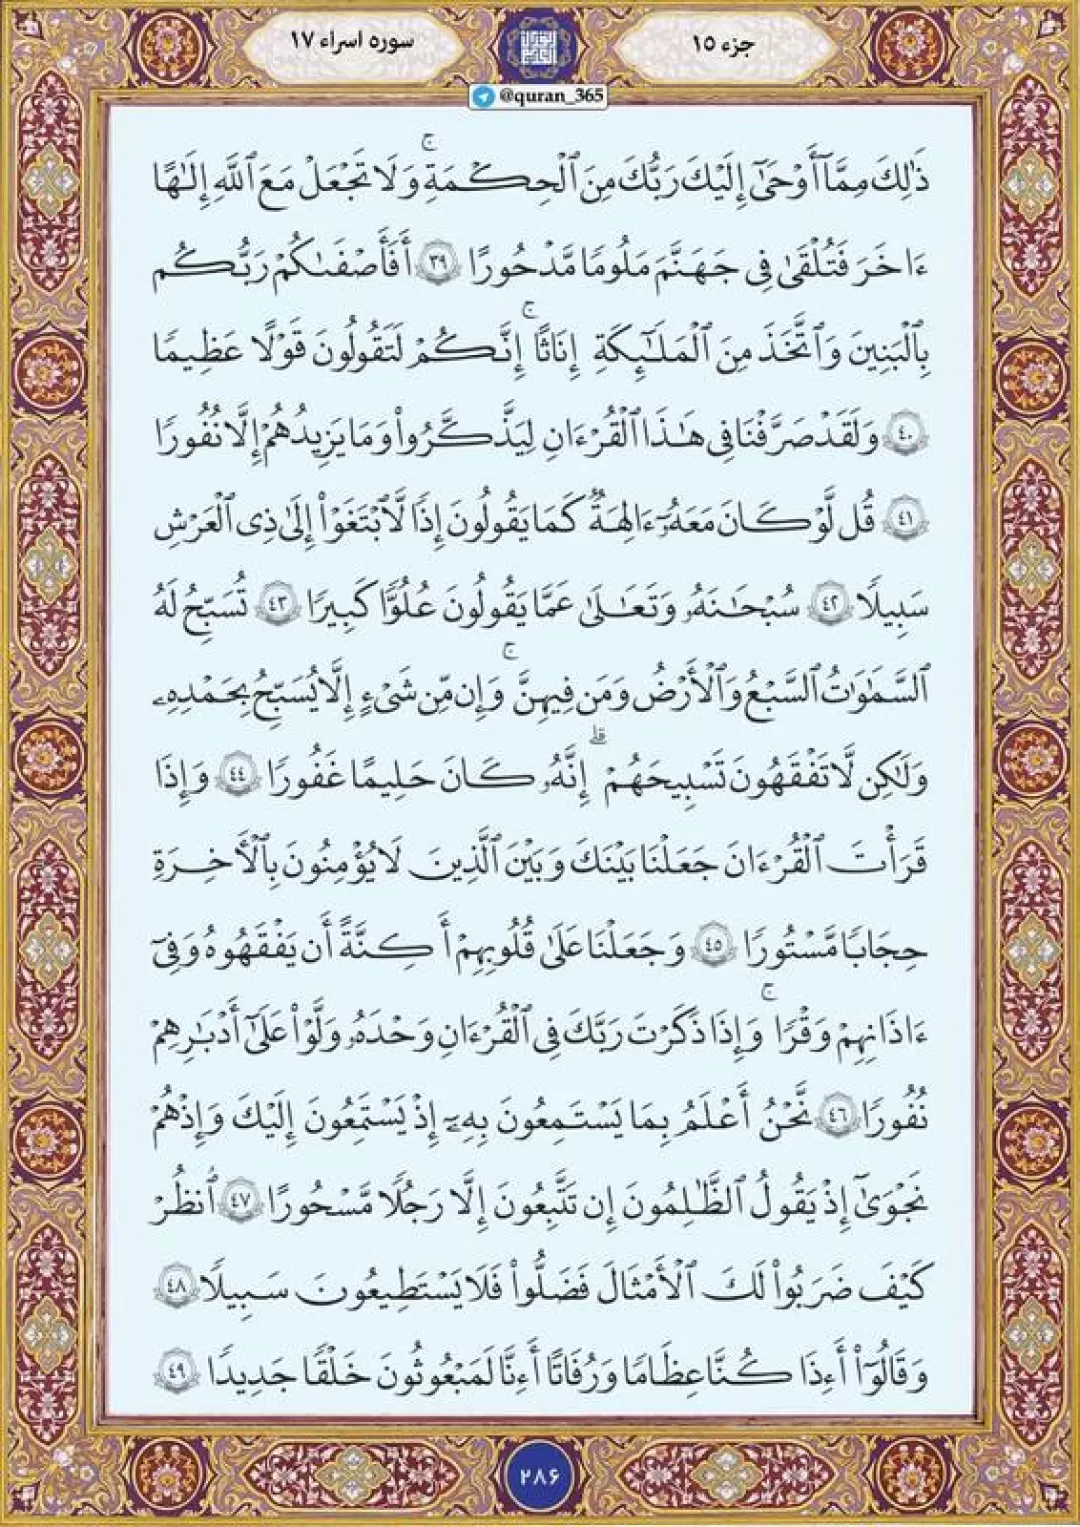 جزء ۱۵
سوره اسراء ۱۷
@quran_365
ذَٰلِكَ مِمَّآ أَوْحَىٰٓ إِلَيْكَ رَبُّكَ مِنَ ٱلْحِكْمَةِ ۚ وَلَا تَجْعَلْ مَعَ ٱللَّهِ إِلَٰهًا
ءَاخَرَ فَتُلْقَىٰ فِى جَهَنَّمَ مَلُومًا مَّدْحُورًا ۳۹ أَفَأَصْفَىٰكُمْ رَبُّكُم
بِٱلْبَنِينَ وَٱتَّخَذَ مِنَ ٱلْمَلَٰٓئِكَةِ إِنَٰثًا ۚ إِنَّكُمْ لَتَقُولُونَ قَوْلًا عَظِيمًا
۴۰ وَلَقَدْ صَرَّفْنَا فِى هَٰذَا ٱلْقُرْءَانِ لِيَذَّكَّرُوا۟ وَمَا يَزِيدُهُمْ إِلَّا نُفُورًا
۴۱ قُل لَّوْ كَانَ مَعَهُۥٓ ءَالِهَةٌ كَمَا يَقُولُونَ إِذًا لَّٱبْتَغَوْا۟ إِلَىٰ ذِى ٱلْعَرْشِ
سَبِيلًا ۴۲ سُبْحَٰنَهُۥ وَتَعَٰلَىٰ عَمَّا يَقُولُونَ عُلُوًّا كَبِيرًا ۴۳ تُسَبِّحُ لَهُ
ٱلسَّمَٰوَٰتُ ٱلسَّبْعُ وَٱلْأَرْضُ وَمَن فِيهِنَّ ۚ وَإِن مِّن شَىْءٍ إِلَّا يُسَبِّحُ بِحَمْدِهِۦ
وَلَٰكِن لَّا تَفْقَهُونَ تَسْبِيحَهُمْ ۗ إِنَّهُۥ كَانَ حَلِيمًا غَفُورًا ۴۴ وَإِذَا
قَرَأْتَ ٱلْقُرْءَانَ جَعَلْنَا بَيْنَكَ وَبَيْنَ ٱلَّذِينَ لَا يُؤْمِنُونَ بِٱلْأَخِرَةِ
حِجَابًا مَّسْتُورًا ۴۵ وَجَعَلْنَا عَلَىٰ قُلُوبِهِمْ أَكِنَّةً أَن يَفْقَهُوهُ وَفِىٓ
ءَاذَانِهِمْ وَقْرًا ۚ وَإِذَا ذَكَرْتَ رَبَّكَ فِى ٱلْقُرْءَانِ وَحْدَهُۥ وَلَّوْا۟ عَلَىٰٓ أَدْبَٰرِهِمْ
نُفُورًا ۴۶ نَّحْنُ أَعْلَمُ بِمَا يَسْتَمِعُونَ بِهِۦٓ إِذْ يَسْتَمِعُونَ إِلَيْكَ وَإِذْ هُمْ
نَجْوَىٰٓ إِذْ يَقُولُ ٱلظَّٰلِمُونَ إِن تَتَّبِعُونَ إِلَّا رَجُلًا مَّسْحُورًا ۴۷ ٱنظُرْ
كَيْفَ ضَرَبُوا۟ لَكَ ٱلْأَمْثَالَ فَضَلُّوا۟ فَلَا يَسْتَطِيعُونَ سَبِيلًا ۴۸
وَقَالُوٓا۟ أَءِذَا كُنَّا عِظَٰمًا وَرُفَٰتًا أَءِنَّا لَمَبْعُوثُونَ خَلْقًا جَدِيدًا ۴۹
۲۸۶